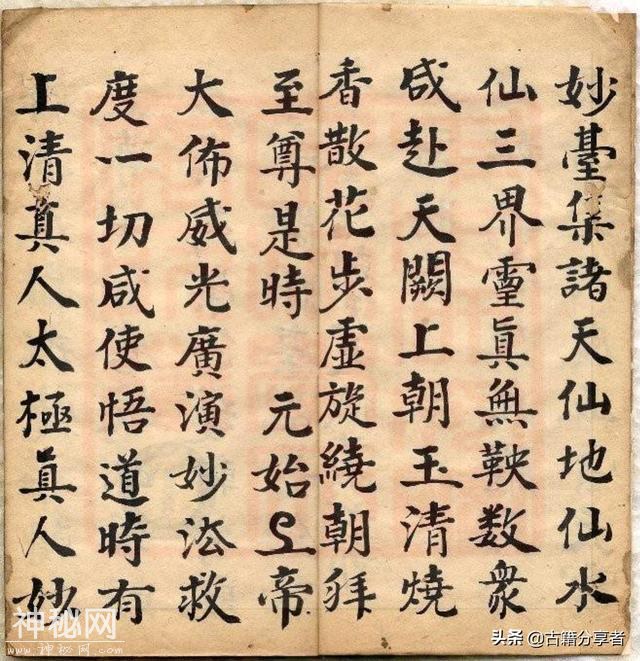 妙臺集諸天仙地仙水
仙三界靈真無鞅数衆
咸赴天闕上朝玉清燒
香散花步虛旋繞朝拜
至尊是時 元始上帝
大佈威光廣演妙法救
度一切咸使悟道時有
上清真人太極真人妙
神秘网
www.shenmiwang.com
头条 @古籍分享者